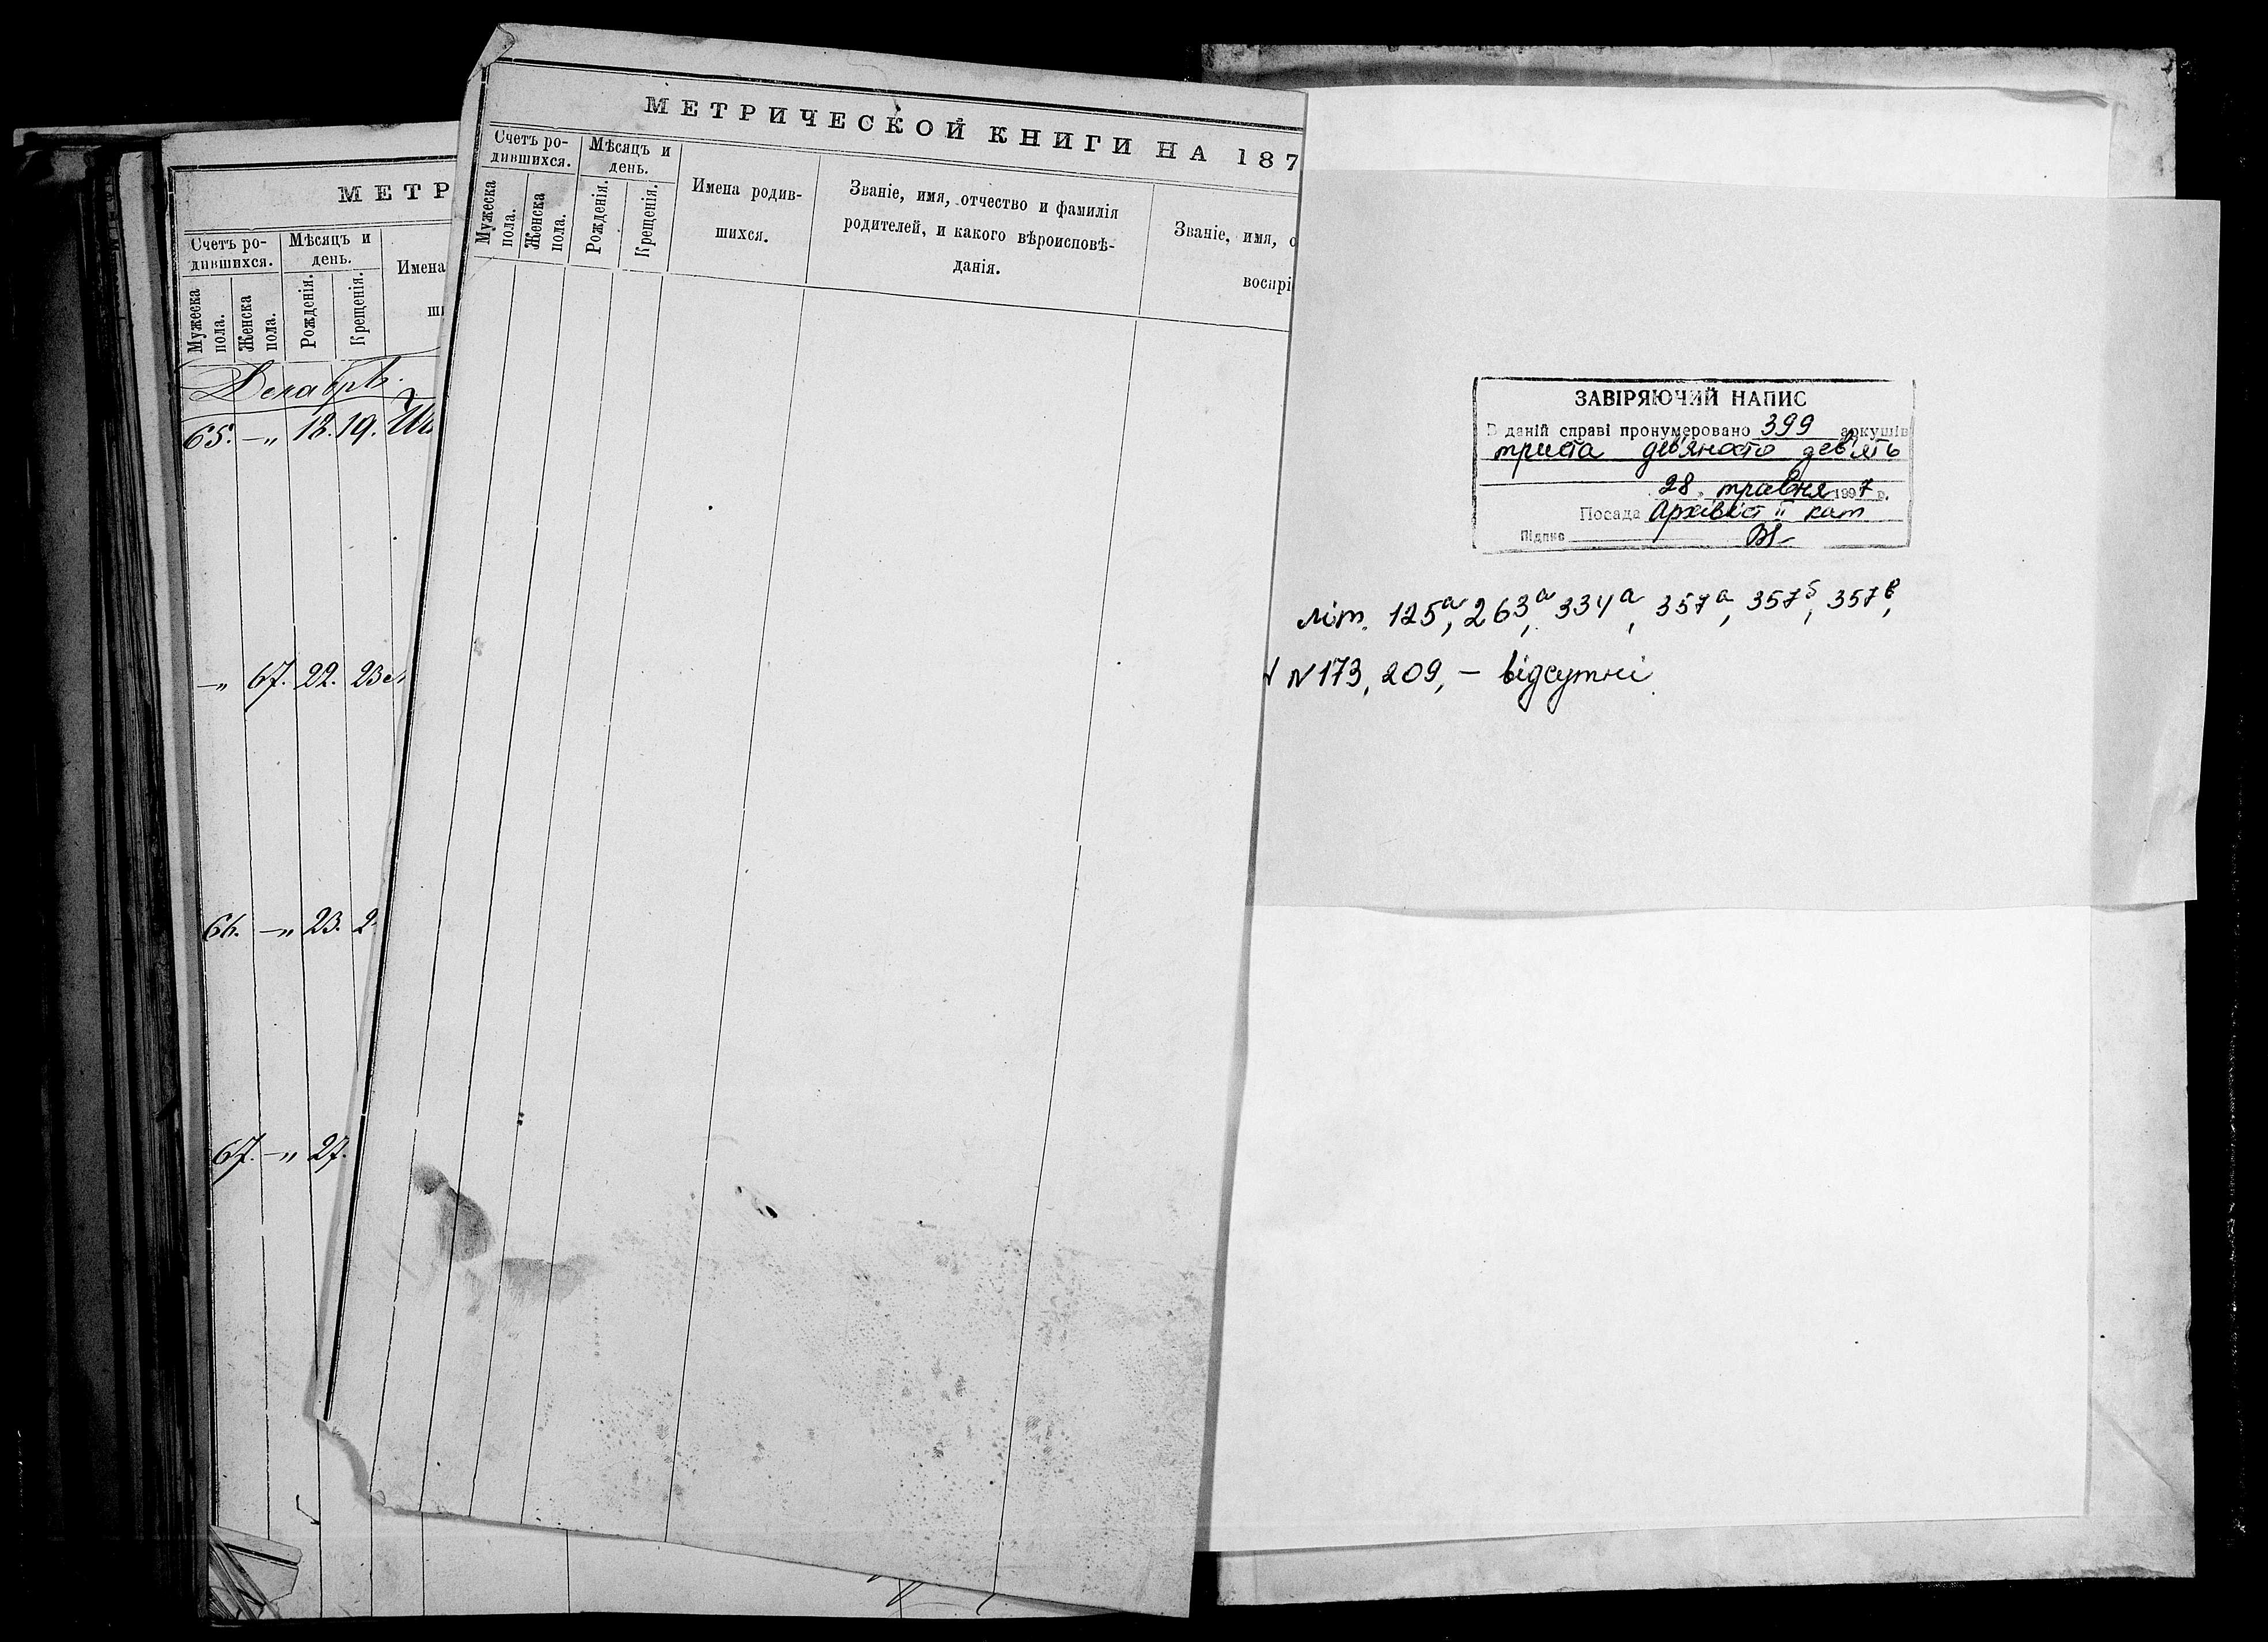 МЕТР
Счетъ ро-
дившихся.
Мѣсяцъ и
день.
Имена
Мужеска
пола.
Женска
пола.
Рожденія.
Крещенія.
Декабрь.
65. -„ 18. 19.
-„ 67. 22. 23
66. -„ 23. 2
67. -„ 27.
МЕТРИЧЕСКОЙ КНИГИ НА 187
Счетъ ро-
дившихся.
Мѣсяцъ и
день.
Мужеска
пола.
Женска
пола.
Рожденія.
Крещенія.
Имена родив-
шихся.
Званіе, имя, отчество и фамилія
родителей, и какого вѣроисповѣ-
данія.
Званіе, имя, о
воспрі
ЗАВІРЯЮЧИЙ НАПИС
В даній справі пронумеровано 399 аркушів
триста дев'яносто дев'ять
28 травня 1997 р.
Посада Архівіст II кат
Підпис
літ. 125а, 263а, 334а, 357а, 357б, 357в,
N 173, 209, – відсутні